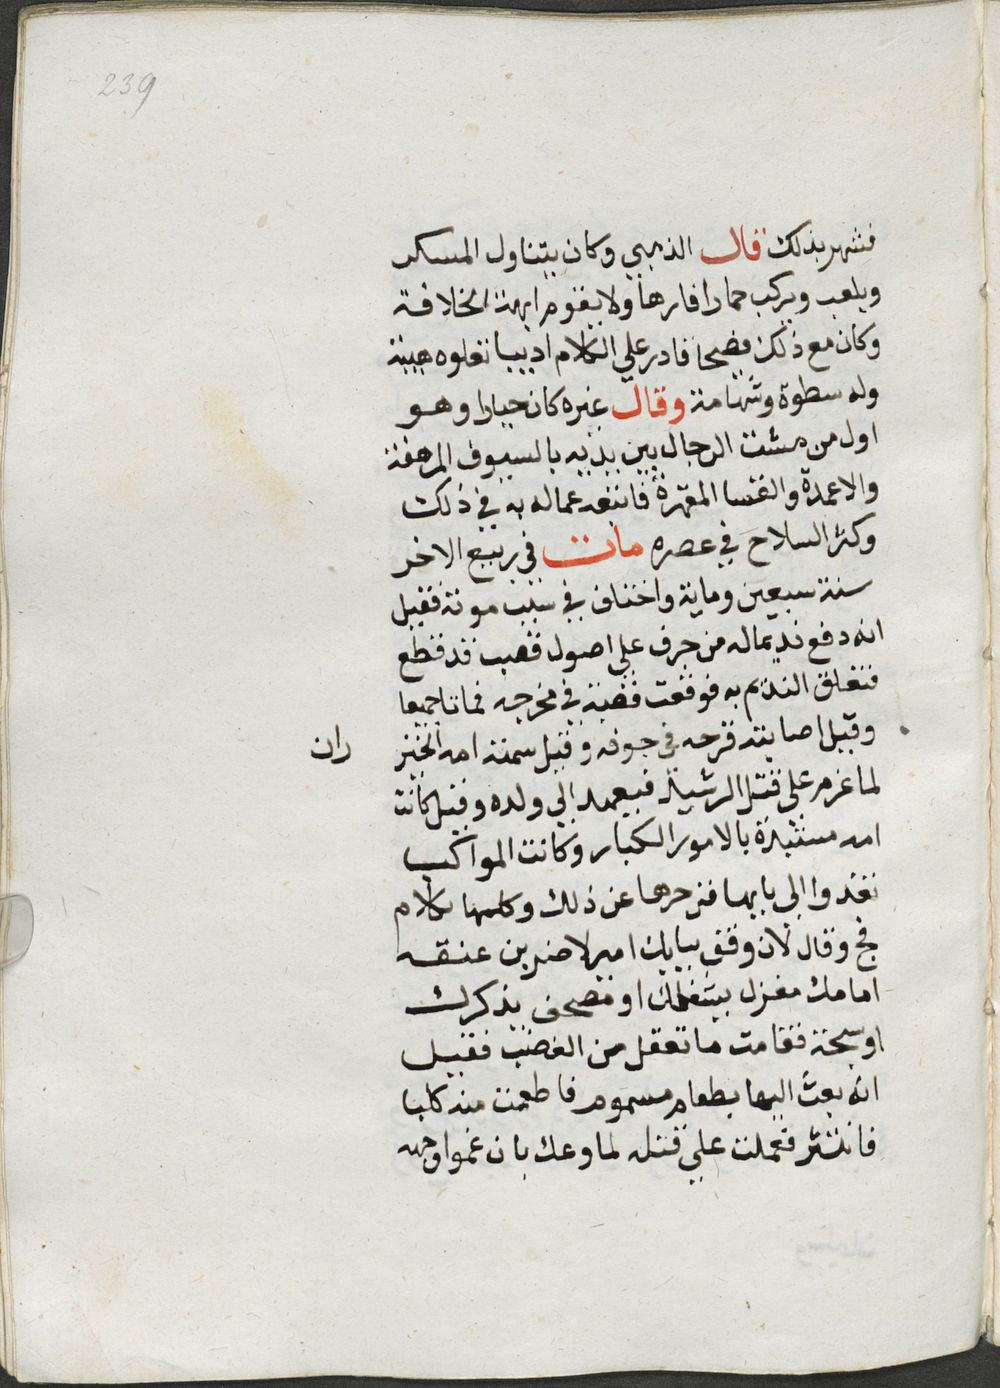 239
فشهر بذلك قال الذهبي وكان يتناول المسكر
ويلعب ويركب حمارا فارها ولا يقوم ابهة الخلافة
وكان مع ذلك فصيحا قادر علي الكلام اديبا تعلوه هيبة
وله سطوة وشهامة وقال غيره كان جبارا وهو
اول من مشت الرجال بين يديه بالسيوف المرهفة
والاعمدة والقسا الموترة فاتبعه عماله به في ذلك
وكثر السلاح في عصره مات في ربيع الاخر
سنة سبعين وماية واختلف في سبب موته فقيل
انه دفع نديما له من جرف على اصول قصب قد قطع
فتعلق النديم به فوقعت قصبة في مخرجه فماتا جميعا
وقيل اصابته قرحه في جوفه وقيل سمته امه الخيز
ران
لما عزم على قتل الرشيد فيعهد الي ولده وقيل كانت
امه مستبدة بالامور الكبار وكانت المواكب
تغدوا الى بابها فزجرها عن ذلك وكلمها بكلام
فج وقال لان وقف ببابك امير لاضربن عنقه
امامك مغزل يشغلك او مصحف يذكرك
او سبحة فقامت ما تعقل من الغضب فقيل
انه بعث اليها بطعام مسموم فاطعمت منه كلبا
فانتثر فعملت على قتله لما وعك بان غموا وجهه